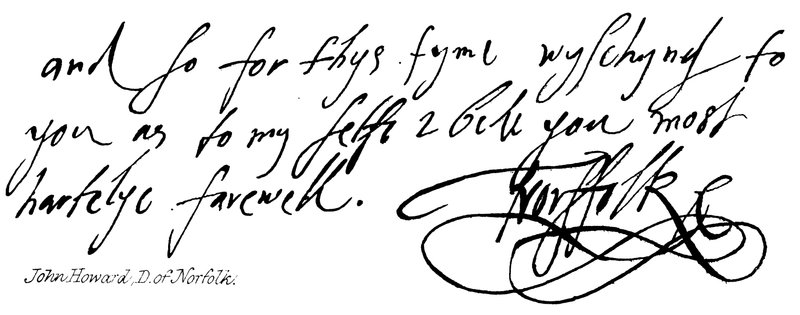 and so for thys tyme wyschyng to
you as to my selffe I bide you most
hartelye farewell.
Norffolk
John Howard, D. of Norfolk.